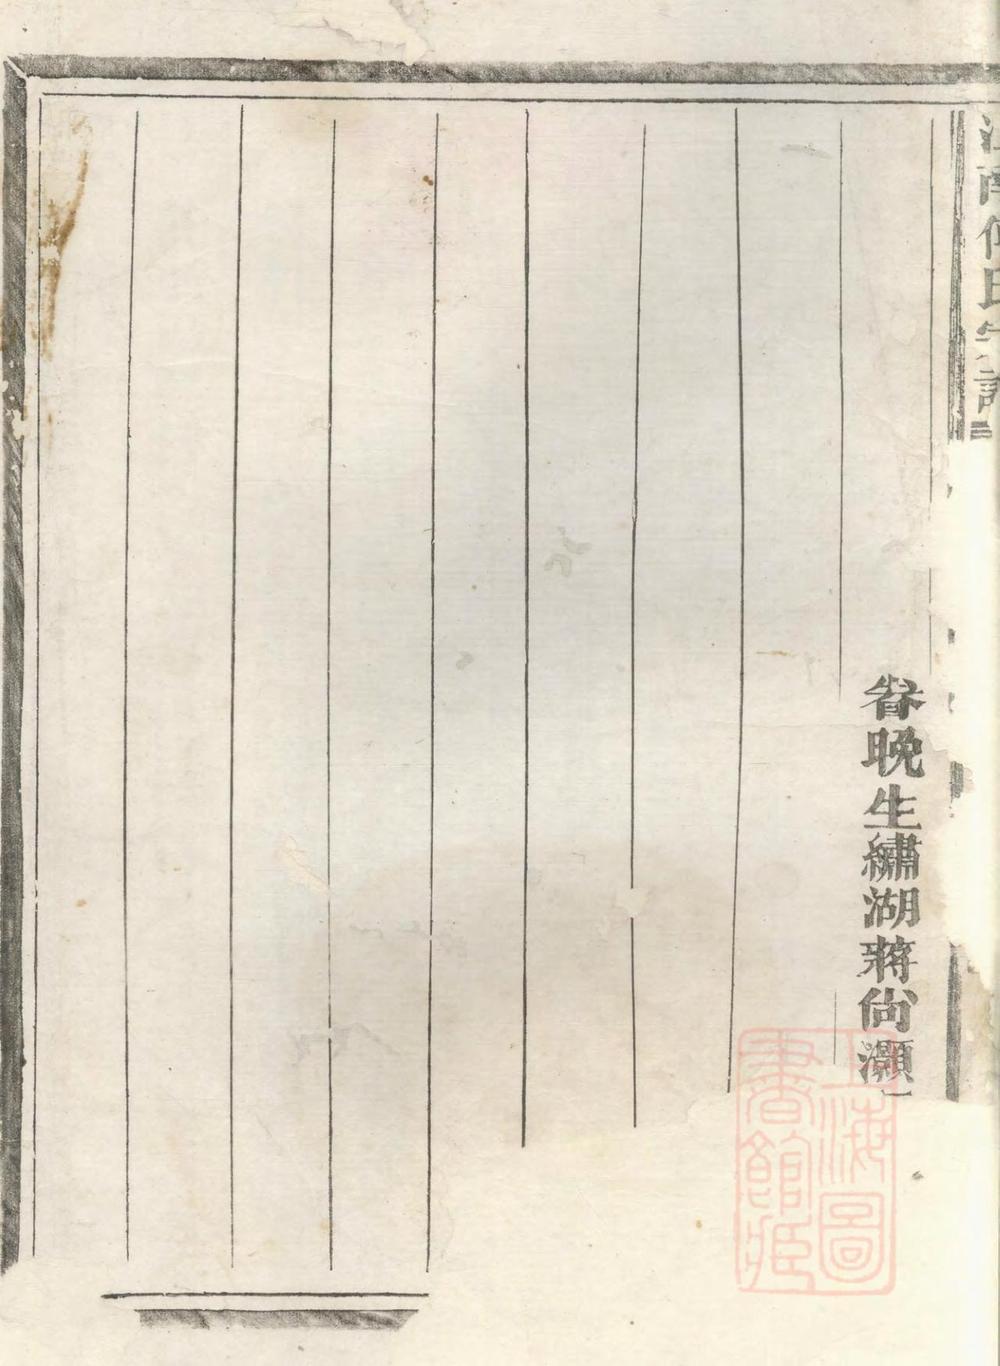 江南傅氏宗譜
眷晚生繡湖蔣尙灝
上海圖
書館藏